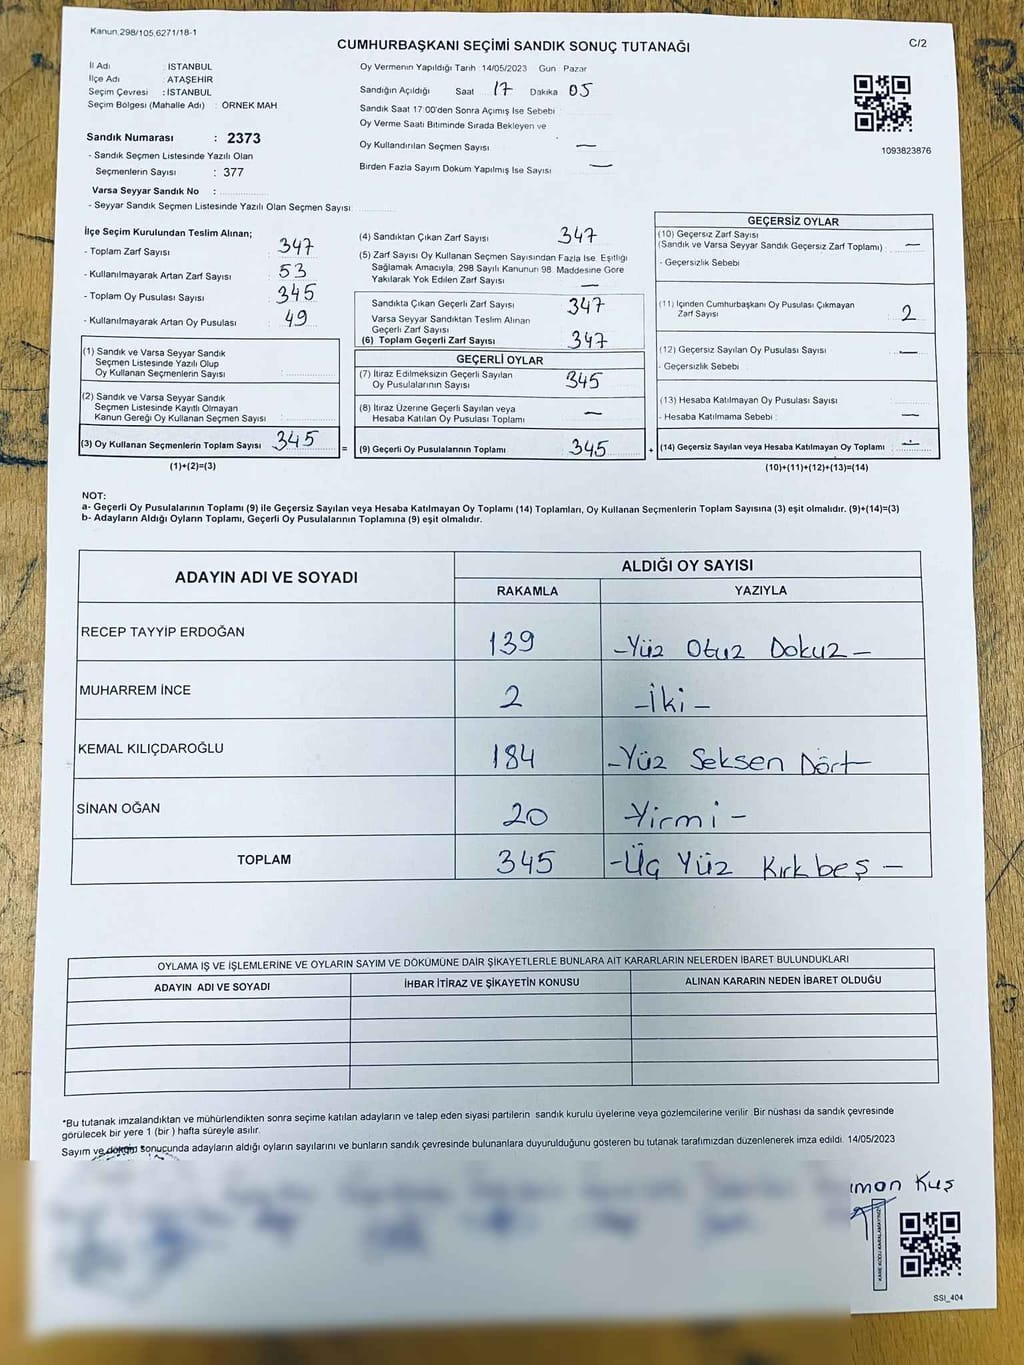 Kanun,298/105,6271/18-1
C/2
CUMHURBAŞKANI SEÇİMİ SANDIK SONUÇ TUTANAĞI
İl Adı : İSTANBUL
İlçe Adı : ATAŞEHİR
Seçim Çevresi : İSTANBUL
Seçim Bölgesi (Mahalle Adı) : ÖRNEK MAH
Sandık Numarası : 2373
- Sandık Seçmen Listesinde Yazılı Olan
Seçmenlerin Sayısı : 377
Varsa Seyyar Sandık No :
- Seyyar Sandık Seçmen Listesinde Yazılı Olan Seçmen Sayısı:
Oy Vermenin Yapıldığı Tarih : 14/05/2023 Gün : Pazar
Sandığın Açıldığı Saat 17 Dakika 05
Sandık Saat 17:00'den Sonra Açımış İse Sebebi :
Oy Verme Saati Bitiminde Sırada Bekleyen ve
Oy Kullandırılan Seçmen Sayısı —
Birden Fazla Sayım Döküm Yapılmış İse Sayısı —
1093823876
İlçe Seçim Kurulundan Teslim Alınan;
- Toplam Zarf Sayısı : 347
- Kullanılmayarak Artan Zarf Sayısı : 53
- Toplam Oy Pusulası Sayısı : 345
- Kullanılmayarak Artan Oy Pusulası : 49
(1) Sandık ve Varsa Seyyar Sandık
Seçmen Listesinde Yazılı Olup
Oy Kullanan Seçmenlerin Sayısı :
(2) Sandık ve Varsa Seyyar Sandık
Seçmen Listesinde Kayıtlı Olmayan
Kanun Gereği Oy Kullanan Seçmen Sayısı :
(3) Oy Kullanan Seçmenlerin Toplam Sayısı 345 =
(1)+(2)=(3)
(4) Sandıktan Çıkan Zarf Sayısı : 347
(5) Zarf Sayısı Oy Kullanan Seçmen Sayısından Fazla İse, Eşitliği
Sağlamak Amacıyla, 298 Sayılı Kanunun 98. Maddesine Göre
Yakılarak Yok Edilen Zarf Sayısı : —
Sandıkta Çıkan Geçerli Zarf Sayısı : 347
Varsa Seyyar Sandıktan Teslim Alınan
Geçerli Zarf Sayısı :
(6) Toplam Geçerli Zarf Sayısı : 347
GEÇERLİ OYLAR
(7) İtiraz Edilmeksizin Geçerli Sayılan
Oy Pusulalarının Sayısı : 345
(8) İtiraz Üzerine Geçerli Sayılan veya
Hesaba Katılan Oy Pusulası Toplamı : —
(9) Geçerli Oy Pusulalarının Toplamı : 345 +
GEÇERSİZ OYLAR
(10) Geçersiz Zarf Sayısı
(Sandık ve Varsa Seyyar Sandık Geçersiz Zarf Toplamı) : —
- Geçersizlik Sebebi :
(11) İçinden Cumhurbaşkanı Oy Pusulası Çıkmayan
Zarf Sayısı : 2
(12) Geçersiz Sayılan Oy Pusulası Sayısı : —
- Geçersizlik Sebebi :
(13) Hesaba Katılmayan Oy Pusulası Sayısı :
- Hesaba Katılmama Sebebi : —
(14) Geçersiz Sayılan veya Hesaba Katılmayan Oy Toplamı : —
(10)+(11)+(12)+(13)=(14)
NOT:
a- Geçerli Oy Pusulalarının Toplamı (9) ile Geçersiz Sayılan veya Hesaba Katılmayan Oy Toplamı (14) Toplamları, Oy Kullanan Seçmenlerin Toplam Sayısına (3) eşit olmalıdır. (9)+(14)=(3)
b- Adayların Aldığı Oyların Toplamı, Geçerli Oy Pusulalarının Toplamına (9) eşit olmalıdır.
ADAYIN ADI VE SOYADI
ALDIĞI OY SAYISI
RAKAMLA YAZIYLA
RECEP TAYYİP ERDOĞAN 139 -Yüz Otuz Dokuz-
MUHARREM İNCE 2 -İki-
KEMAL KILIÇDAROĞLU 184 -Yüz Seksen Dört
SİNAN OĞAN 20 -Yirmi-
TOPLAM 345 -Üç Yüz Kırkbeş-
OYLAMA İŞ VE İŞLEMLERİNE VE OYLARIN SAYIM VE DÖKÜMÜNE DAİR ŞİKAYETLERLE BUNLARA AİT KARARLARIN NELERDEN İBARET BULUNDUKLARI
ADAYIN ADI VE SOYADI İHBAR İTİRAZ VE ŞİKAYETİN KONUSU ALINAN KARARIN NEDEN İBARET OLDUĞU
*Bu tutanak imzalandıktan ve mühürlendikten sonra seçime katılan adayların ve talep eden siyasi partilerin sandık kurulu üyelerine veya gözlemcilerine verilir. Bir nüshası da sandık çevresinde
görülecek bir yere 1 (bir) hafta süreyle asılır.
Sayım ve döküm sonucunda adayların aldığı oyların sayılarını ve bunların sandık çevresinde bulunanlara duyurulduğunu gösteren bu tutanak tarafımızdan düzenlenerek imza edildi. 14/05/2023
Kuş
KARE KODU KARALAMAYINIZ
SSI_404